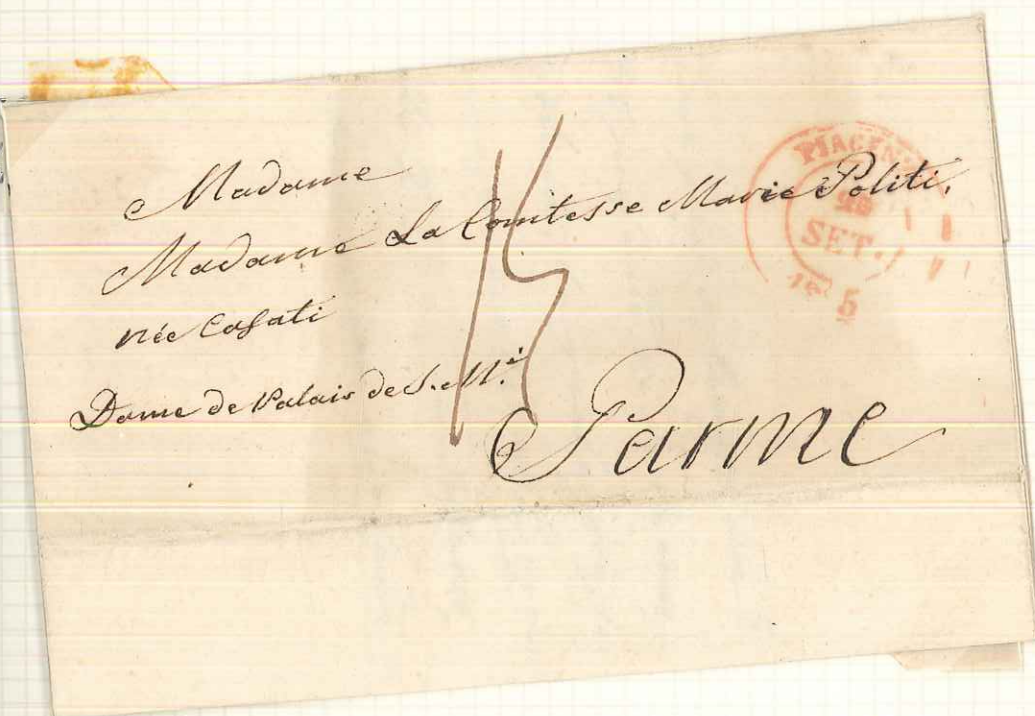 Madame
Madame La Comtesse Marie Politi.
née Casati
Dame de Palais de S. M.é
Parme
15
PIACEN
SET.
5